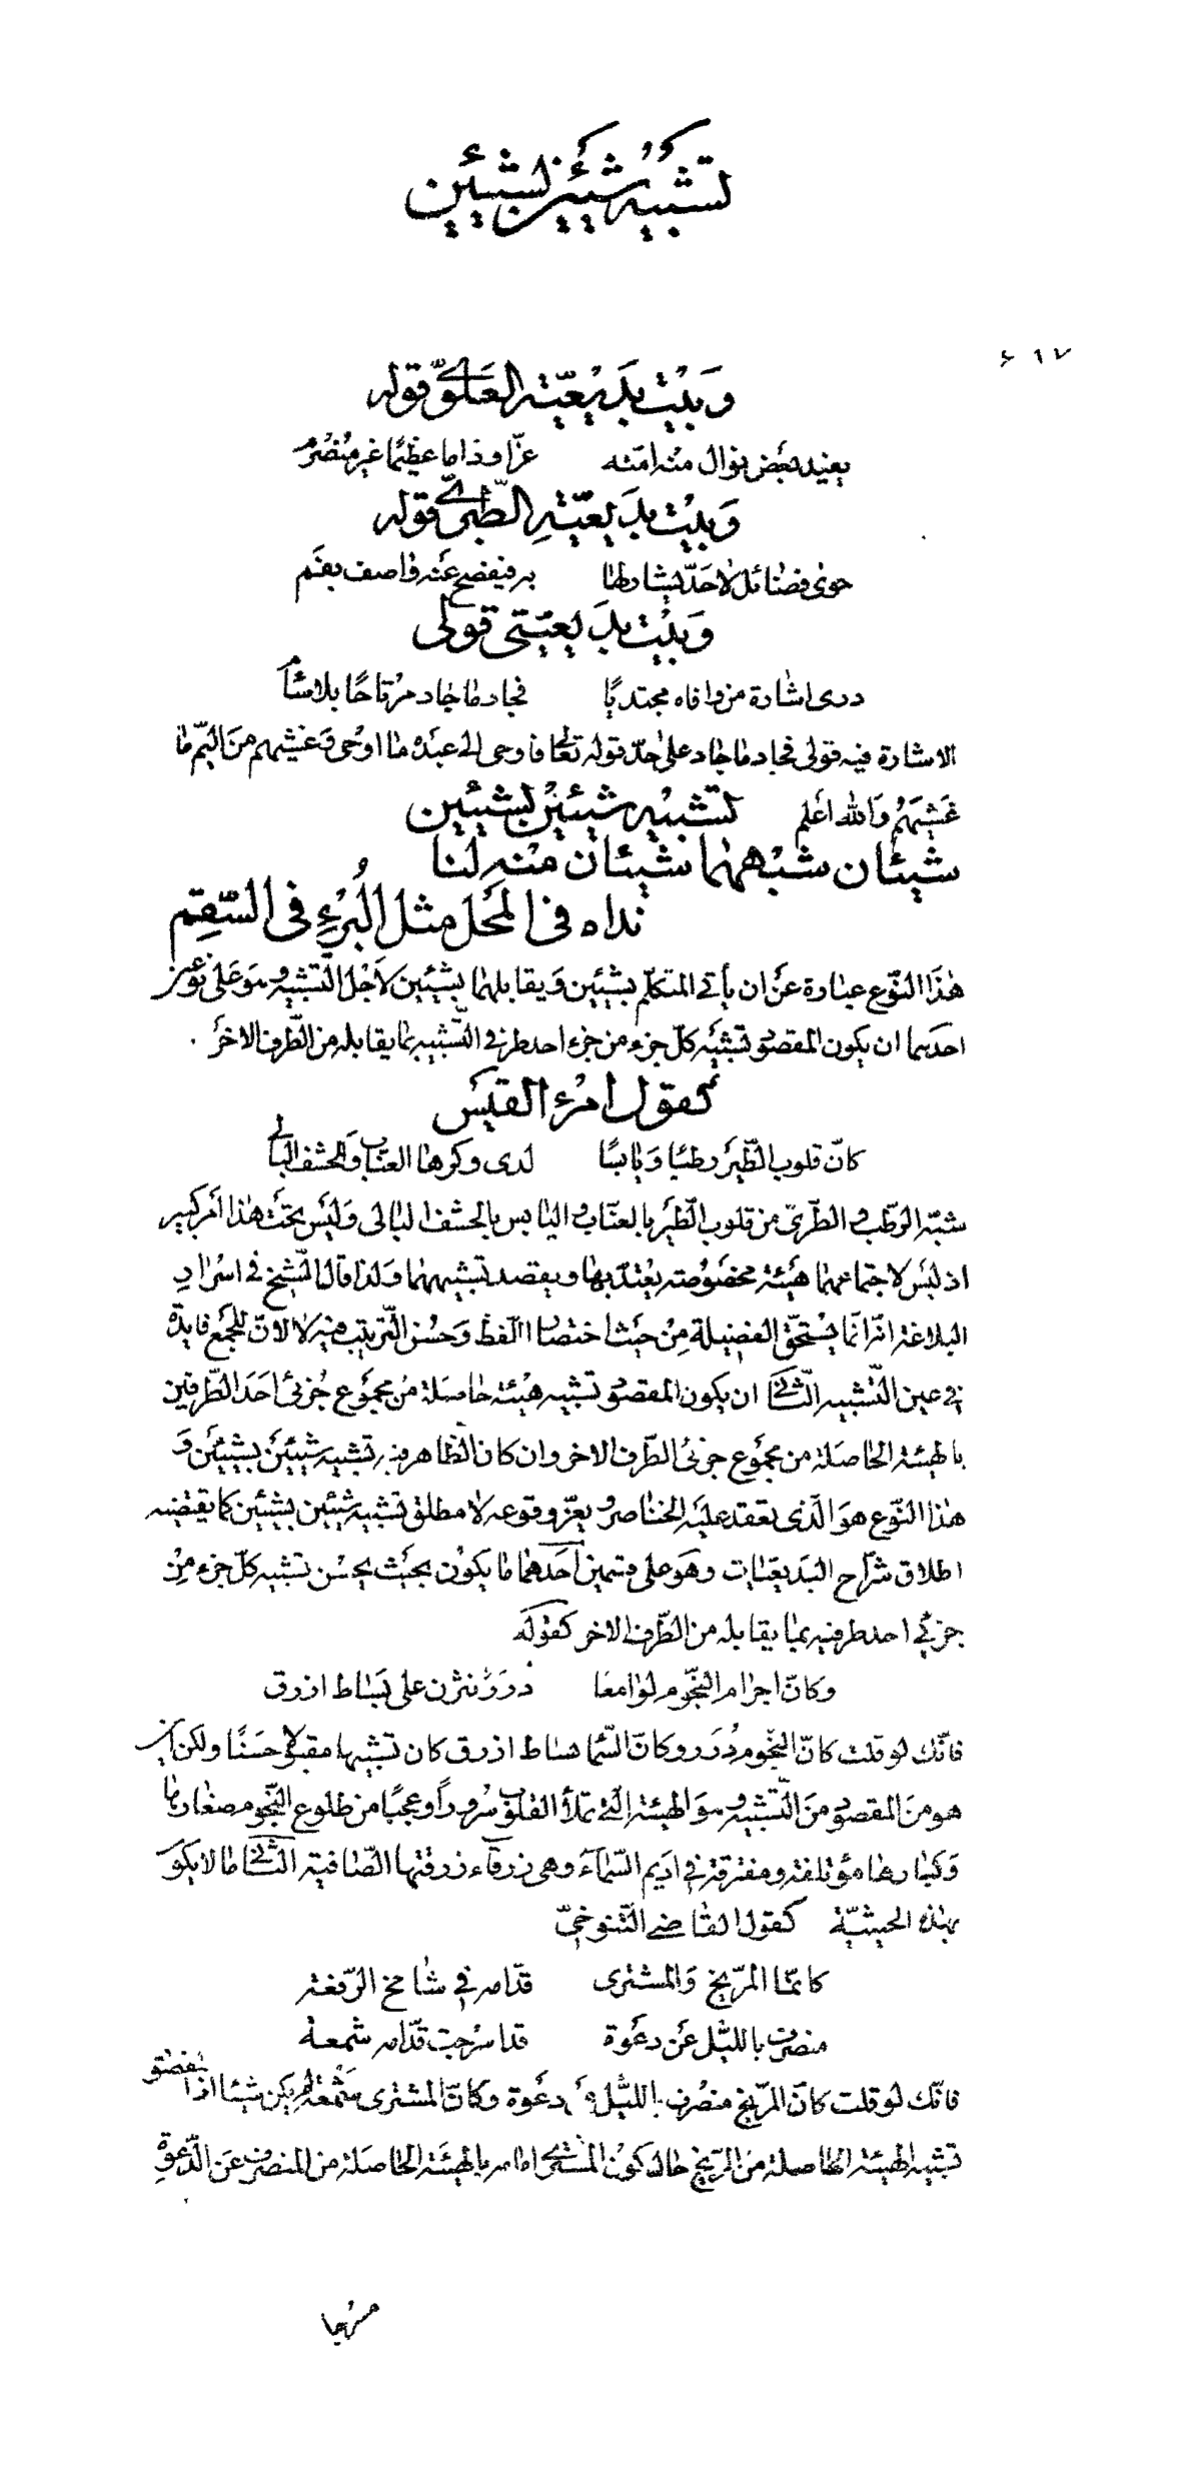 تشبيه شيئين بشيئين
٦١٧
وَبَيْت بَديعيّته العلويّ قوله
يعنيد بعض نوال منه امّته عزّا و ذاما عظيمًا غير منصرم
وَبَيْت بديعيّتهِ الطّبري قوله
حوى فضائل لا حَدّ يشار لها به فيفصح عنه واصف بفم
وَبَيْت بديعيّتى قولى
درى اشارة من وافاه مجتديًا فجاد ما جاد مرتاحًا بلا سَأَم
الاشارة فيه قولى فجاد ما جاد على حدّ قوله تعالى فاوحى الى عبده ما اوحى وَغشيهم منَ اليمّ ما
غَشِيَهُم وَالله اَعلم تشبيه شيئين بشيئين
شيئان شبههما شيئان منه لنا
نداه فى المحَل مثل البُرْءِ فى السَّقِم
هٰذَا النّوع عبارة عَن ان يأتى المتكلّم بشيئين وَيقابلهما بشيئين لاَجْل التّشبيه وهوَ عَلى نوعين
احدَهما ان يكون المقصود تشبيه كلّ جزء من جزء احد طرفى التّشبيه بما يقابله من الطّرف الاخَر .
كقول امرء القيس
كانّ قلوب الطّير رطبًا وَيابسًا لدى وكرها العنّاب وَالحشف البالى
شبّه الرّطب الطّرىّ من قلوب الطّير بالعنّاب و اليابس بالحشف البالى وَليس تحتَ هذا اَمر كبير
اذ ليس لاجتماعهما هَيئة مخصُوصة يعْتدّ بها ويقصد تشبيههما وَلذا قال الشّيخ فى اسْرار
البلاغة انّه انّما يسْتحقّ الفضيلة مِن حَيث اختصار اللّفظ وَحسْن التّرتيب فيه لا لانّ للجَمع فايدة
فى عين التّشبيه الثّانى ان يكون المقصود تشبيه هيْئة حاصلة من مجموع جُزئى اَحَد الطّرفين
بالهيئة الحاصَلة من مجموع جزئى الطّرف الاخر وان كان الظّاهر فيه تشبيه شيئين بشيئين وَ
هٰذا النّوع هوَ الّذى تعقد عليَه الخناصر ويعزّ وقوعه لا مطلق تشبيه شيئين بشيئين كما يقتضيه
اطلاق شرّاح البَديعيّات وهوَ على قسمين اَحَدهما ما يكوْن بحيث يحسْن تشبيه كلّ جزء مِنْ
جزئى احد طرفيه بما يقابله من الطّرف الاخر كقوله
وكانّ اجرام النّجُوم لوامعًا دُرَرٌ نثرن على بَسَاط ازرق
فانّك لو قلت كانّ النّجوم دُرَر وكانّ السّما بساط ازرق كان تشبيها مقبولا حسَنًا ولكن اين
هو منَ المقصود منَ التّشبيه وهوَ الهيئة الّتى تملأ القلوب سُرورًا وعجبًا من طلوع النّجوم صغارها
وَكبارها مؤتلفة ومفترقة فى اديم السّماء وهى زرقاء زرقتها الصّافية الثّانى ما لا يكون
بهٰذه الحيثيّة كقول القاضى التّنوخىّ
كانّما المرّيخ وَالمشترى قدّامه فى شامخ الرّفعة
منصرف باللّيْل عَن دعَوة قد اسْرجت قدّامه شمعة
فانّك لو قلت كانّ المرّيخ منصرف باللّيل عن دعَوة وكانّ المشترى شَمْعة لم يكن شيئا اذا المقصود
تشبيه الهيئة الحاصلة منَ المرّيخ حال كون المشترى امامه بالهيئة الحاصلة من المنصرف عَن الدّعوة